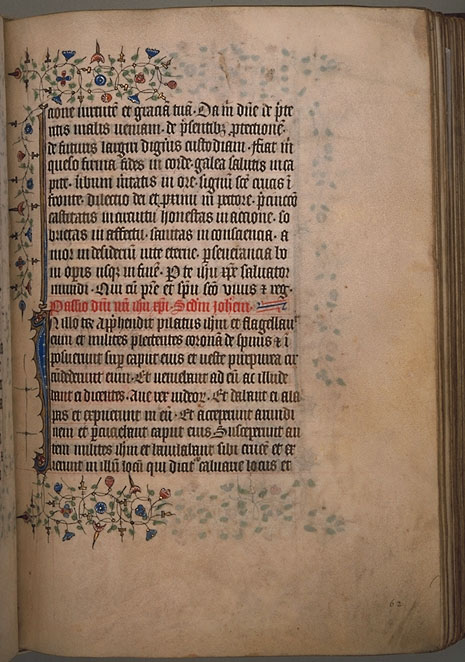 cione uirtutē et gracia tuā. Da m dñe de pre
ritis malis ueniam. de psentibꝫ ptectione.
de futuris largiri digneris custodiam. ffiat m
queso firma fides in corde. galea salutis in ca
pite. ī ore. signū sce crucis ī
fronte. dilectio dei et primi in pectore.
castitatis in circuitu honestas in accione. so
brietas in affectu. sanitas in consciencia. a
mor in desideriū uite eterne. pseuerancia bo
ni opis usqꝫ in finē. P te ihu xpe saluator
mundi. Qui cū pre et spū sco viuis et reg.
Passio dñi nri ihu xpi. Scdm johem.
IN illo tpr Apprehendit pilatus ihm et flagellauit
eum et milites plectentes coronā de spinis et ī
posuerunt sup caput eius et ueste purpurea cir
cūdederunt eum. Et ueniebant ad eū ac illude
bant ei dicentes. Aue rex iudeoꝝ. Et dabant ei ala
pas et expuerunt in eū. Et acceperunt arundi
nem et pcuciebant caput eius Susceperunt au
tem milites ihm et baiulabant sibi crucē et ex
ierunt in illū locū qui dicit caluarie locus et
62